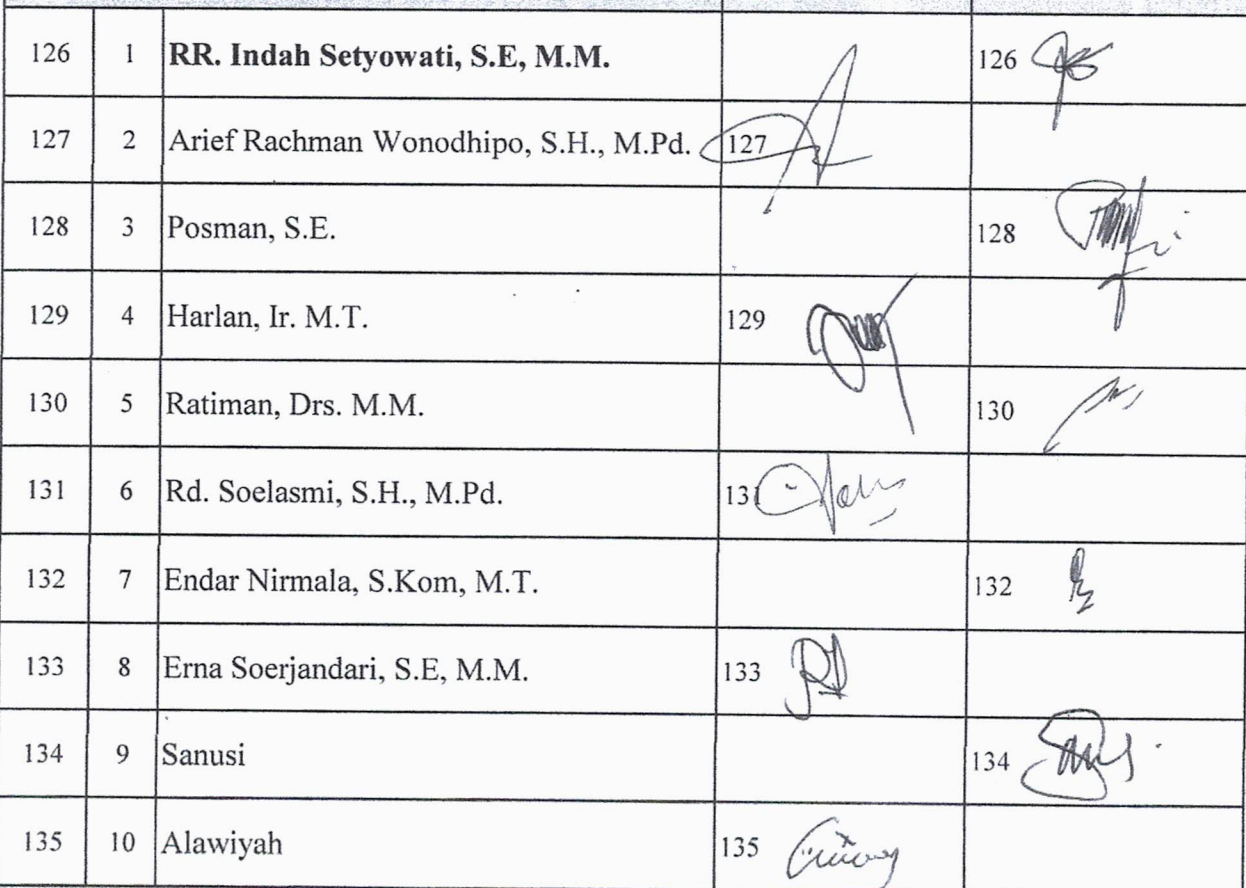 126 1 RR. Indah Setyowati, S.E, M.M. 126
127 2 Arief Rachman Wonodhipo, S.H., M.Pd. 127
128 3 Posman, S.E. 128
129 4 Harlan, Ir. M.T. 129
130 5 Ratiman, Drs. M.M. 130
131 6 Rd. Soelasmi, S.H., M.Pd. 131
132 7 Endar Nirmala, S.Kom, M.T. 132
133 8 Erna Soerjandari, S.E, M.M. 133
134 9 Sanusi 134
135 10 Alawiyah 135